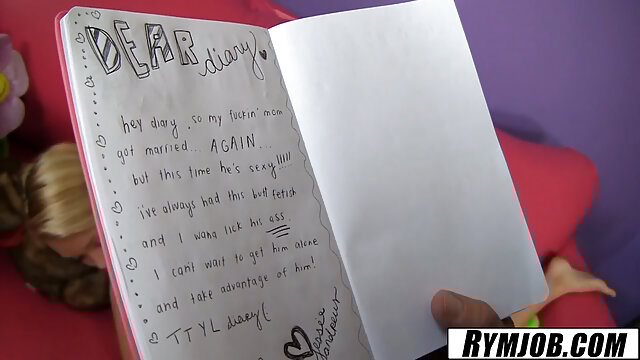 DEAR diary
hey diary, so my fuckin' mom
got married... AGAIN...
but this time he's sexy!!!!!
i've always had this butt fetish
and I wana lick his ass.
I can't wait to get him alone
and take advantage of him!
TTYL diary(
RYMJOB.COM